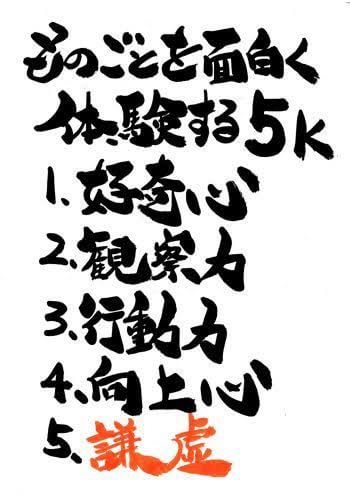 ものごとを面白く
体験する5K
1、好奇心
2、観察力
3、行動力
4、向上心
5、謙虚